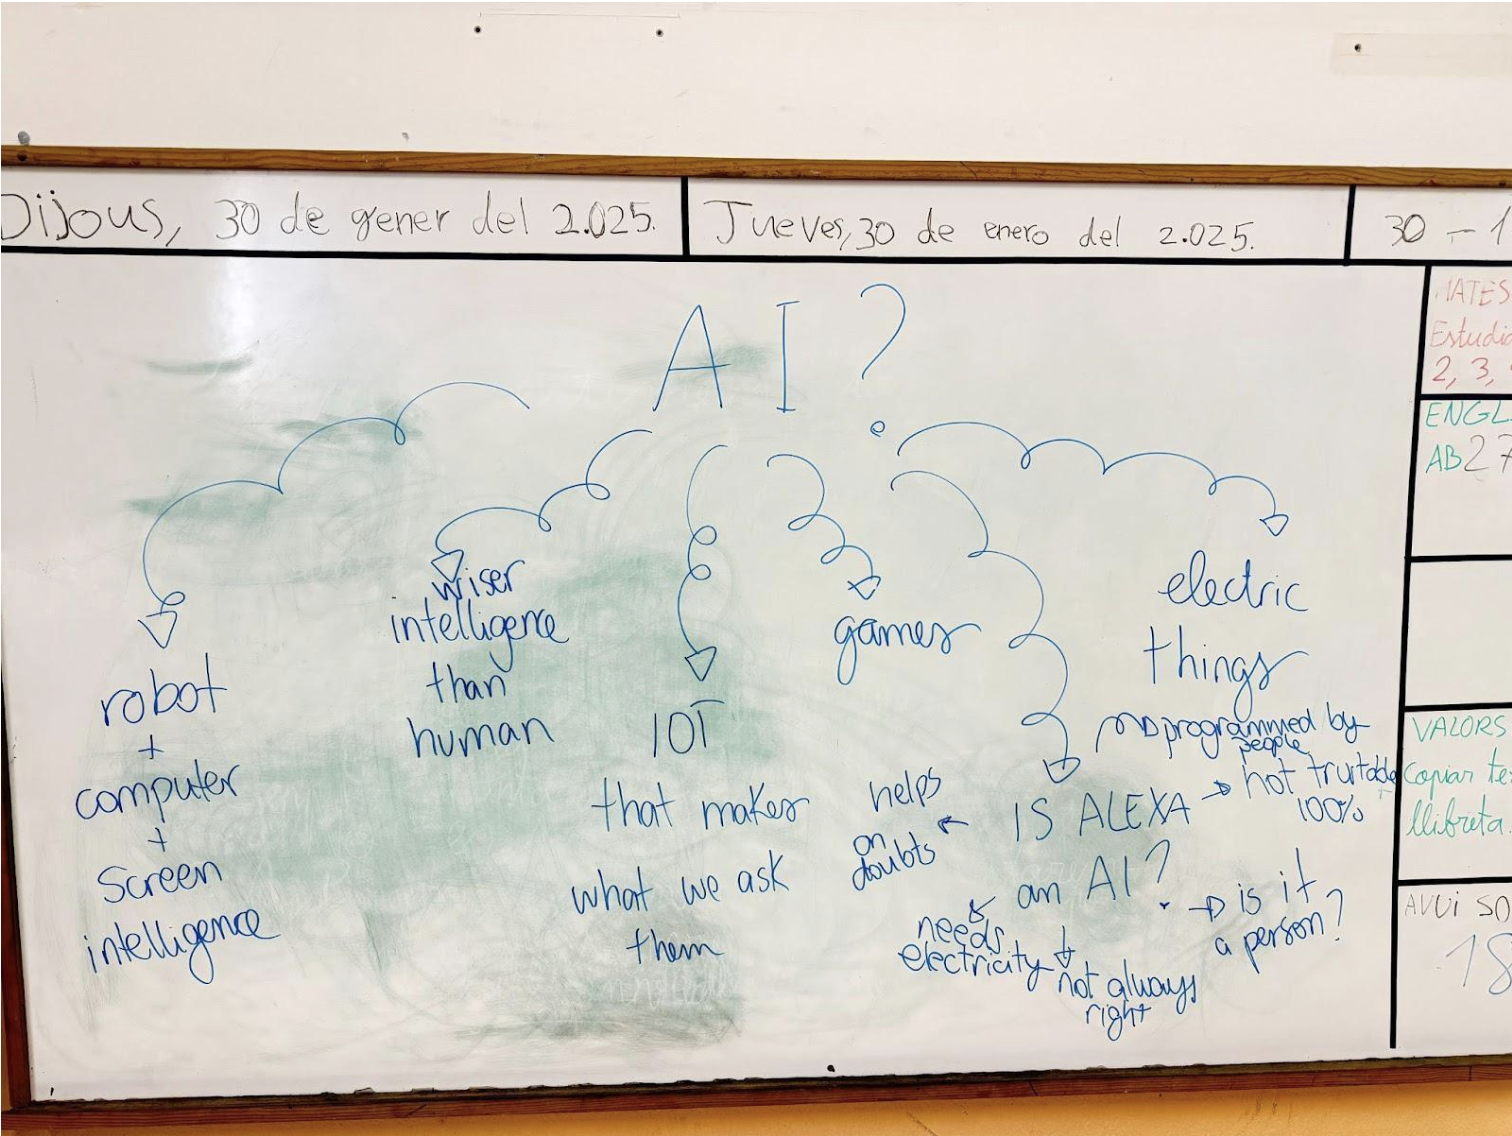 Dijous, 30 de gener del 2.025.
Jueves, 30 de enero del 2.025.
30 - 1
AI?
robot
+
computer
+
screen
intelligence
wiser
intelligence
than
human
IOT
that makes
what we ask
them
games
IS ALEXA
an AI?
helps
on
doubts
needs
electricity
not always
right
is it
a person?
programmed by
people
not trustable
100%
electric
things
MATES
Estudia
2, 3,
ENGL
AB 27
VALORS
Copiar te
llibreta.
AVUI SO
18